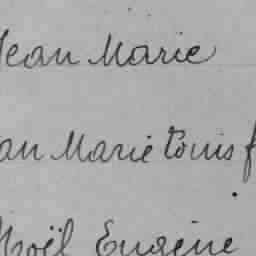 Jean Marie
an Marie Louis f
Noël Eugène